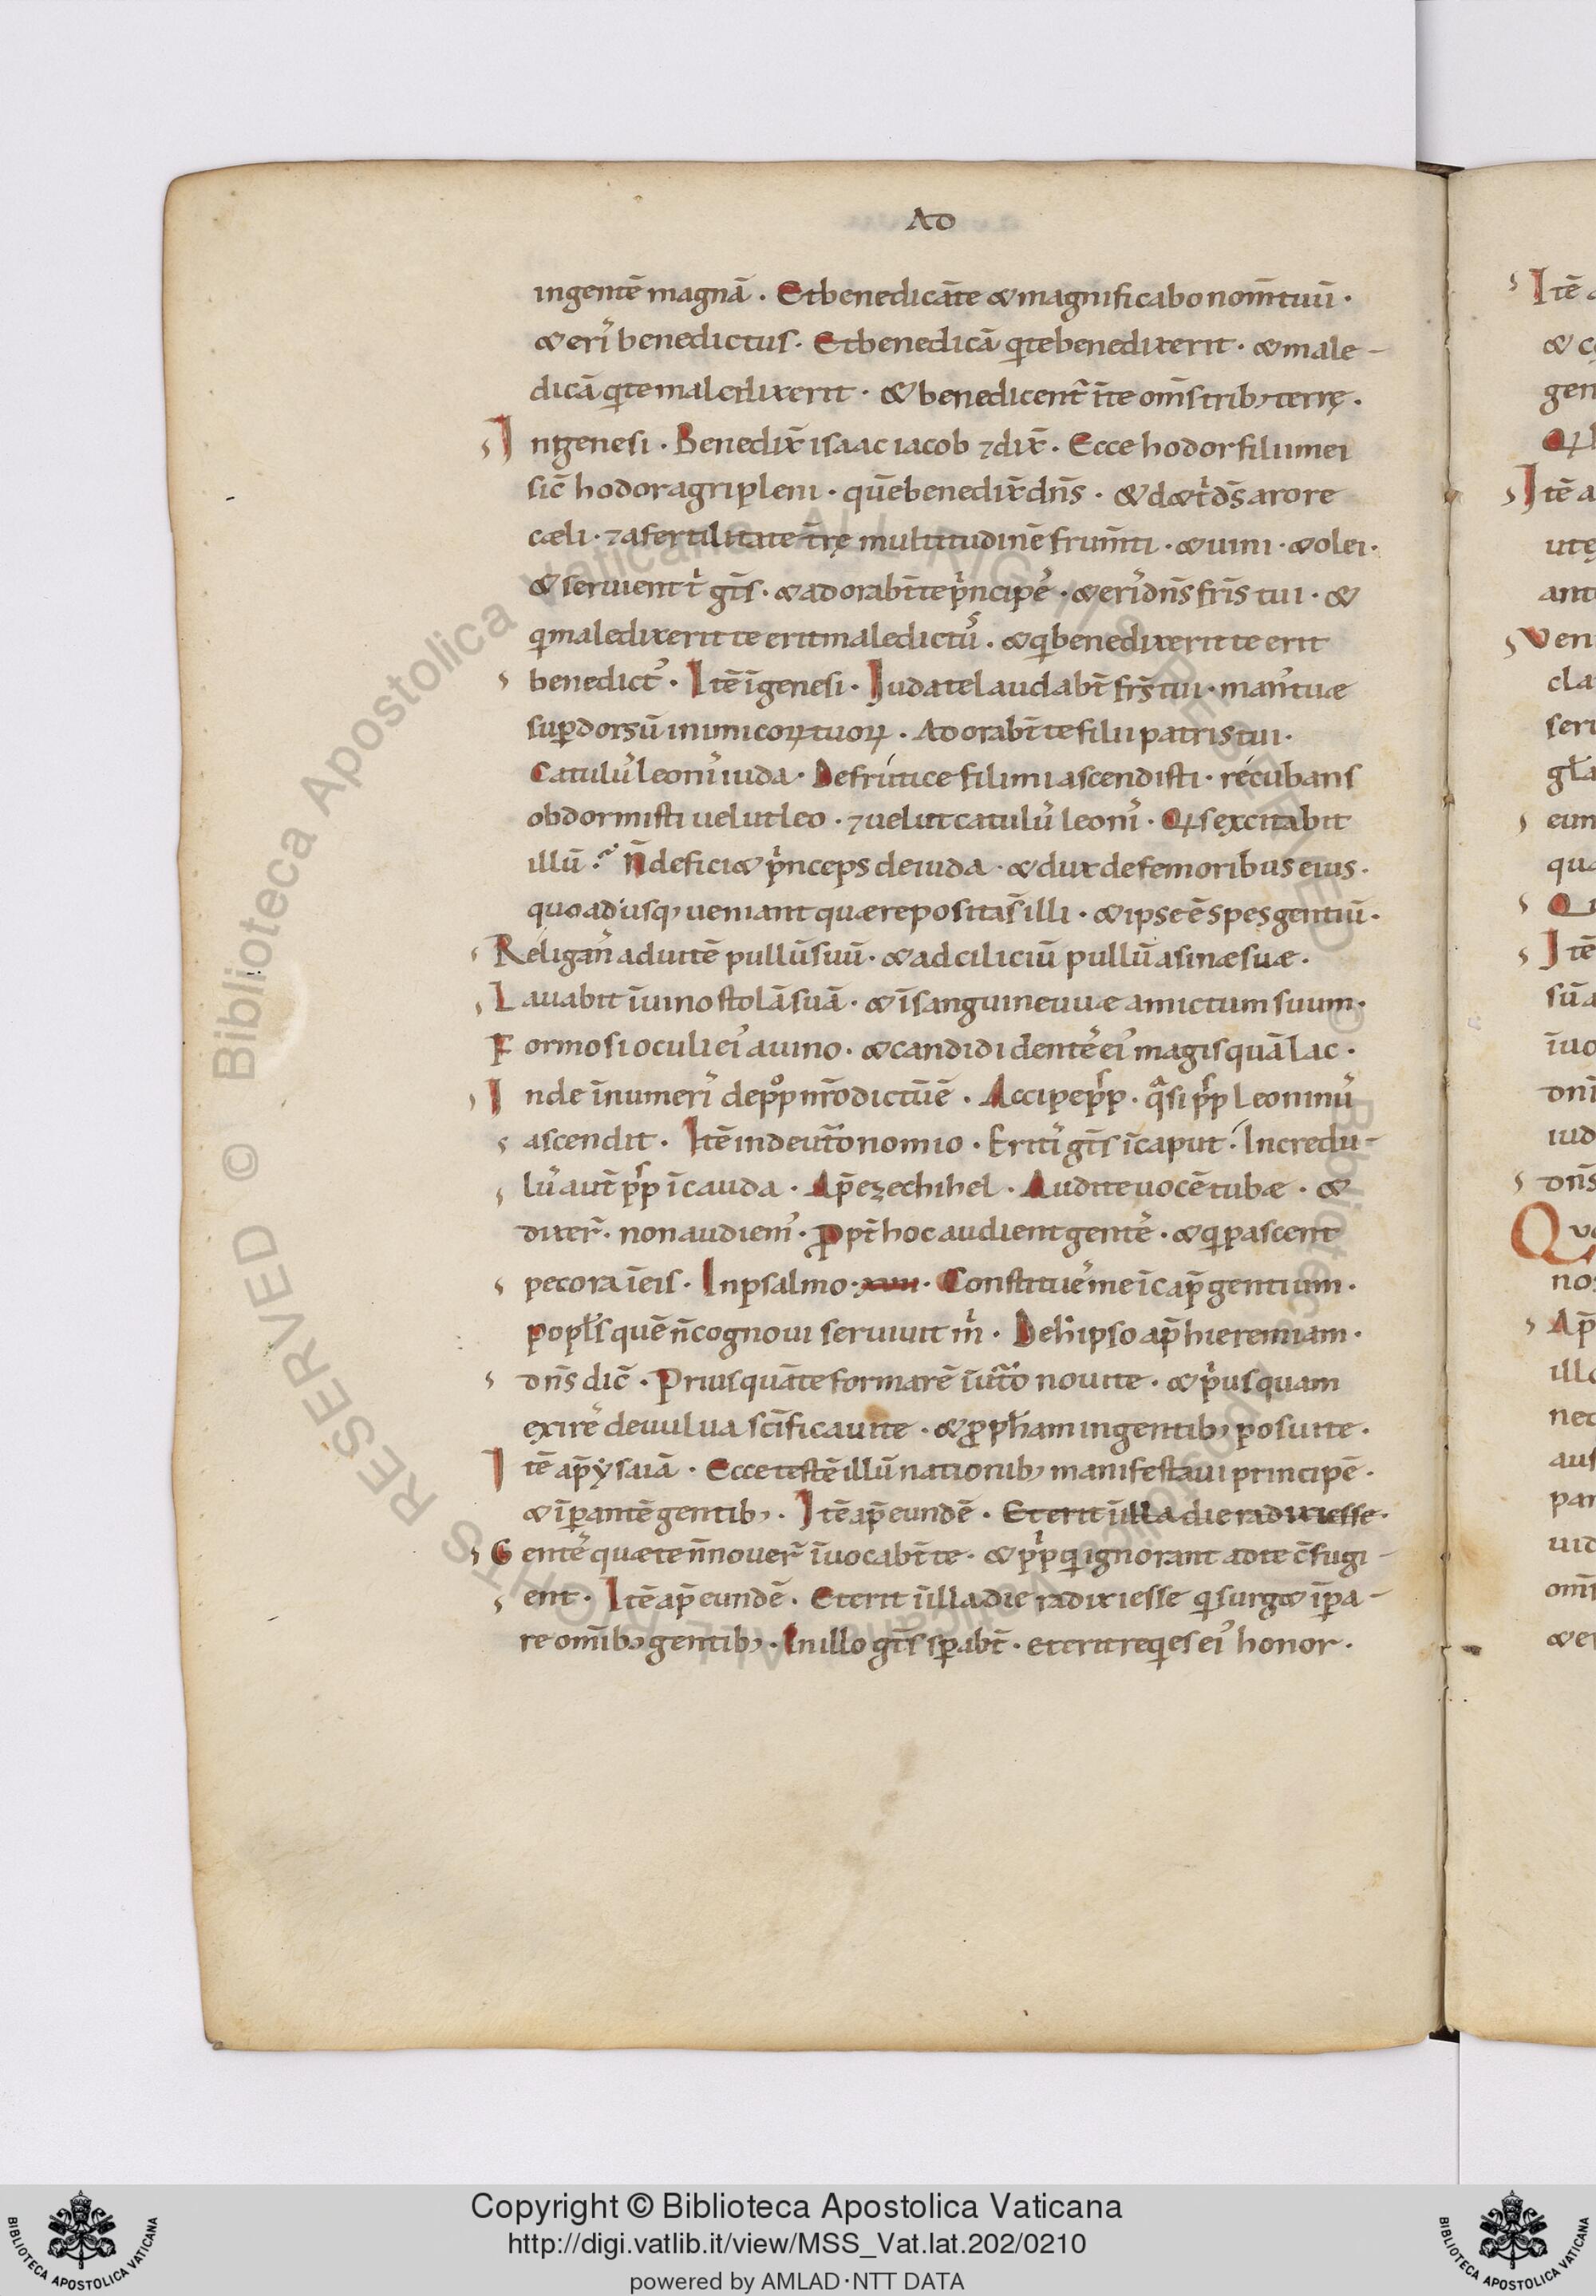 AD
ingentē magnā · Et benedicā te & magnificabo nom̄ tuū ·
& eri᷒ benedictus · Et benedicā q te benedixerit · & male-
dicā q te maledixerit · & benedicent᷑ ī te om̄s trib; terrę ·
In genesi · Benedix̄ isaac iacob ⁊ dix̄ · Ecce hodor filii mei
sic̄ hodor agri pleni · quē benedix̄ dn̄s · & d& t̍ ds̄ a rore
cæli · ⁊ a fertilitate tr̄ę multitudinē frum̄ti · & uini · & olei ·
& seruient t̍ gt̄s · & adorabt̄ te p̍ncipe᷒ · & eri᷒ dn̄s fr̄is tui · &
q maledixerit te erit maledictu᷒ · & q benedixerit te erit
benedict᷒ · Itē ī genesi · Iuda te laudabt̄ frs̄ tui · man᷒ tuæ
sup dorsū inimicoꝝ tuoꝝ · Adorabt̄ te filii patris tui ·
Catulu᷒ leoni᷒ iuda · De frutice fili mi ascendisti · recubans
obdormisti uelut leo · ⁊ uelut catulu᷒ leoni᷒ · Qs excitabit
illū · n̄ defici& p̍nceps de iuda · & dux de femoribus eius ·
quoadusq; ueniant quæ reposita s̄ illi · & ipse ē spes gentiū ·
Religan᷒ ad uitē pullū suū · & ad ciliciū pullū asinæ suæ ·
Lauabit ī uino stolā suā · & ī sanguine uuæ amictum suum ·
Formosi oculi ei᷒ a uino · & candidi dente᷒ ei᷒ magis quā lac ·
Inde ī numeri᷒ de ppᵒ nr̄o dictū ē · Accipe pp · qͣsi pp leoninu᷒
ascendit · Itē in deut᷑onomio · Eriti᷒ gt̄s ī caput · Incredu-
lu᷒ aut̄ pp ī cauda · Ap̄ ezechihel · Audite uocē tubæ · &
dixer̄ · non audiem᷒ · Propt̄ hoc audient gente᷒ · & q pascent
pecora ī eis · In psalmo · xvii · Constitue᷒ me ī cap̄ gentium ·
popl̄s quē n̄ cognoui seruiuit m̍ · De h̍ ipso ap̄ hieremiam ·
dn̄s dic̄ · Priusquā te formarē ī ut᷑o noui te · & p̍usquam
exire᷒ de uulua scīficaui te · & ꝓph̄am in gentib; posui te ·
Itē ap̄ ysaiā · Ecce testē illū nationib; manifestaui principē ·
& īpantē gentib; · Itē ap̄ eundē · Et erit ī illa die radix iesse ·
Gente᷒ quæ te n̄ nouer̄ īuocabt̄ te · & pp q ignorant ad te c̄fugi-
ent · Itē ap̄ eundē · Et erit ī illa die radix iesse q surg& īpa-
re om̄ib; gentib; · In illo gt̄s spabt̄ · et erit reqes ei᷒ honor ·
Copyright © Biblioteca Apostolica Vaticana
http://digi.vatlib.it/view/MSS_Vat.lat.202/0210
powered by AMLAD·NTT DATA